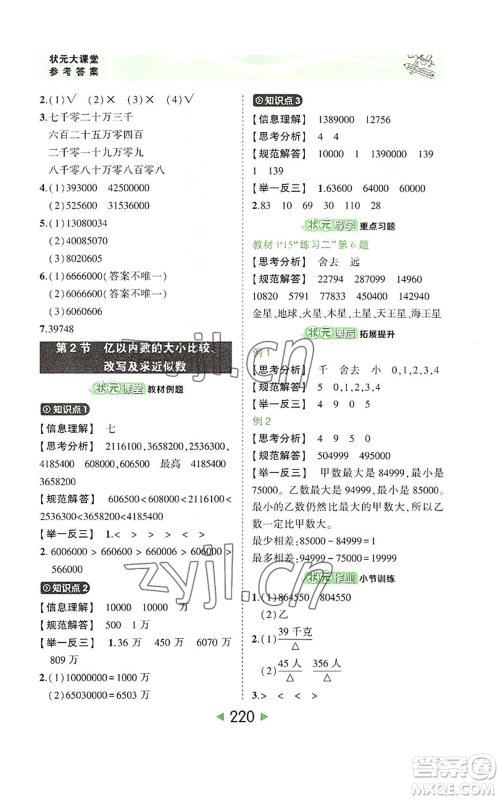 状元大课堂
参考答案
2.(1)√ (2)× (3)× (4)√
3.七千零二十万三千
六百二十五万零四百
二千零五十万零五十
八千零八十万八千零八
4.(1)393000 42500000
(2)525600 5256000
5.(1)13080034
(2)31060504
(3)8020605
6.(1)6666000(答案不唯一)
(2)6006066(答案不唯一)
(3)6060606
7.39748
第2节 亿以内数的大小比较、
改写及求近似数
状元课堂 教材例题
知识点1
【信息理解】 七
【思考分析】 2116100,3658200,2536300,
4185400 608000,631200 最高 4185400
3658200
【规范解答】 606500<608000<631200
<2116100<2536300<3658200<4185400
【举一反三】 1.> < > < >
2. 6006000>666000>660006>606006>
566000
知识点2
【信息理解】 10000 10000 万
【思考分析】 500 1 万
【规范解答】
【举一反三】 1.36 万 44 万 695 万
809 万
2.(1)50000=5 万
(2)65030000=6503 万
知识点3
【信息理解】 1389000 12756
【思考分析】 4 4
【规范解答】 10000 1 1389000 139
1 139
【举一反三】 1.63600 64000 60000
2.83 10 69 30 110 28
状元导学 重点习题
教材P15“练习二”第6题
【思考分析】 舍去 远
【规范解答】 22794 287090 14960
10820 4150 5791 22794 10820
金星,地球,火星,木星,土星,天王星,海王星
状元课后 拓展提升
例1
【思考分析】 千 舍去 小 五入 大
【规范解答】 5 0,1,2,3,4
【举一反三】 0,4,9 5,0,4
例2
【思考分析】 4 9 5 0
【规范解答】 甲数最大是84999,最小是
75000。乙数最大是94999,最小是85000。
因为84999<85000,所以乙数比甲数大。
【举一反三】 甲数最大是84999,乙数最小
是85000,乙数最小也比甲数的最大大,所以乙
数一定比甲数大。
最少相差:85000-84999=1
最多相差:94999-75000=19999
状元作业 小节训练
1.(1)864550 804550
(2)乙
2.(1)39千克
△
(2)45人 356人
△ △
3.> < < >
220
zyjl.cn
zyjl.cn
作业帮